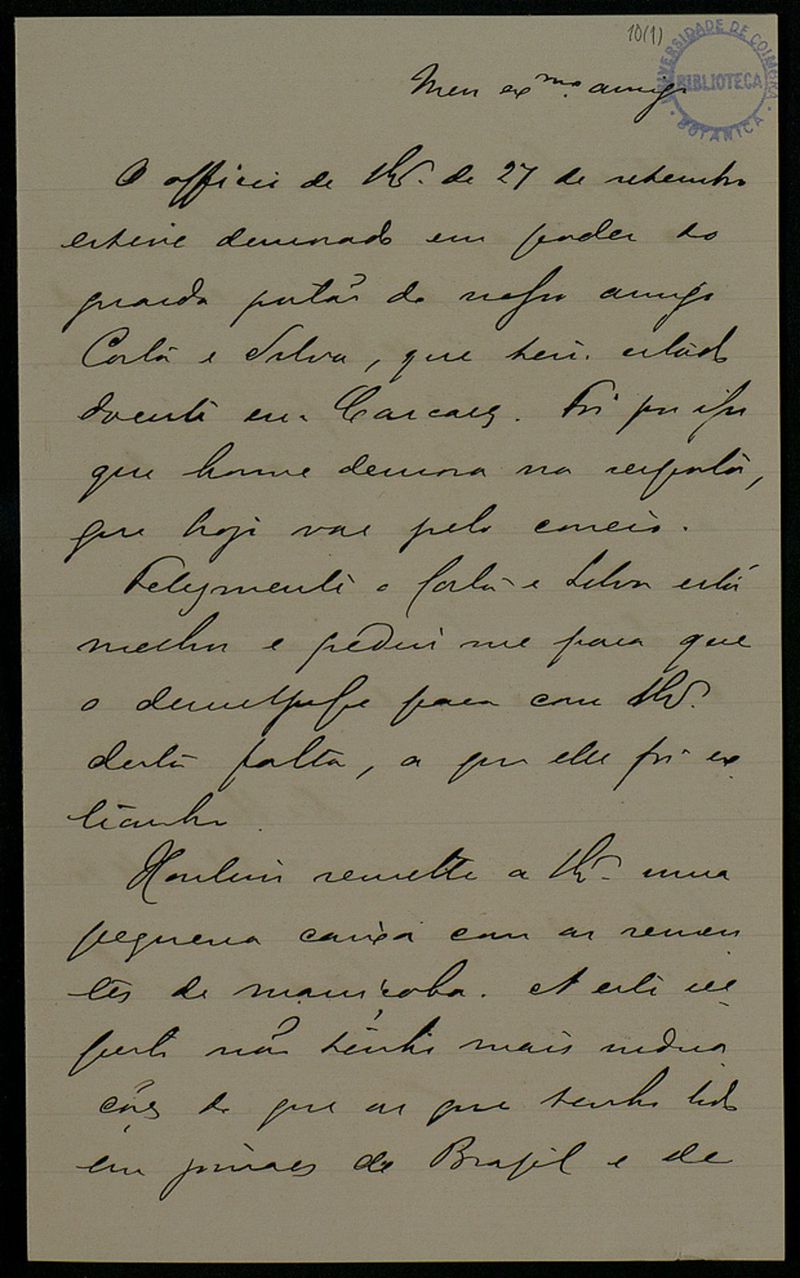 10(1)
UNIVERSIDADE DE COIMBRA
BIBLIOTECA
BOTANICA
Meu exmo. amigo
O officio de V. de 27 de setembro
esteve demorado em poder do
guarda portão do nosso amigo
Costa e Silva, que tem estado
doente em Cascaes. Foi por isso
que houve demora na resposta,
que hoje vae pelo correio.
Felizmente o Costa e Silva está
melhor e pediu me para que
o desculpasse para com V.
desta falta, a que elle foi ex
tranho.
remette a V. uma
pequena caixa com as semen
tes de maniçoba. A este res
peito não tenho mais indica
ções do que as que tenho lido
em jornaes do Brazil e de